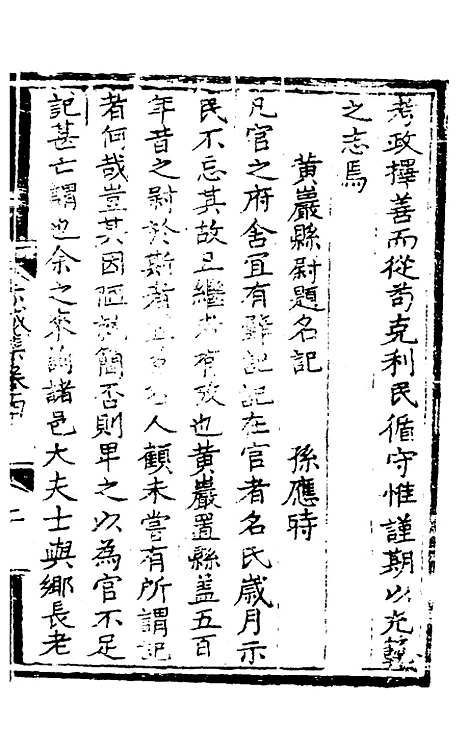 考政擇善而從苟克利民循守惟謹期以充
之志焉
黃巖縣尉題名記 孫應時
凡官之府舍宜有題記記在官者名民歳月示
民不忘其故且繼者有攷也黃巖置縣盖五百
年昔之尉於斯者人顧未嘗有所謂記
者何哉豈其因陋就簡否則卑之以為官不足
記甚亡謂也余之來詢諸邑大夫士與鄉長老
赤城集卷四 二